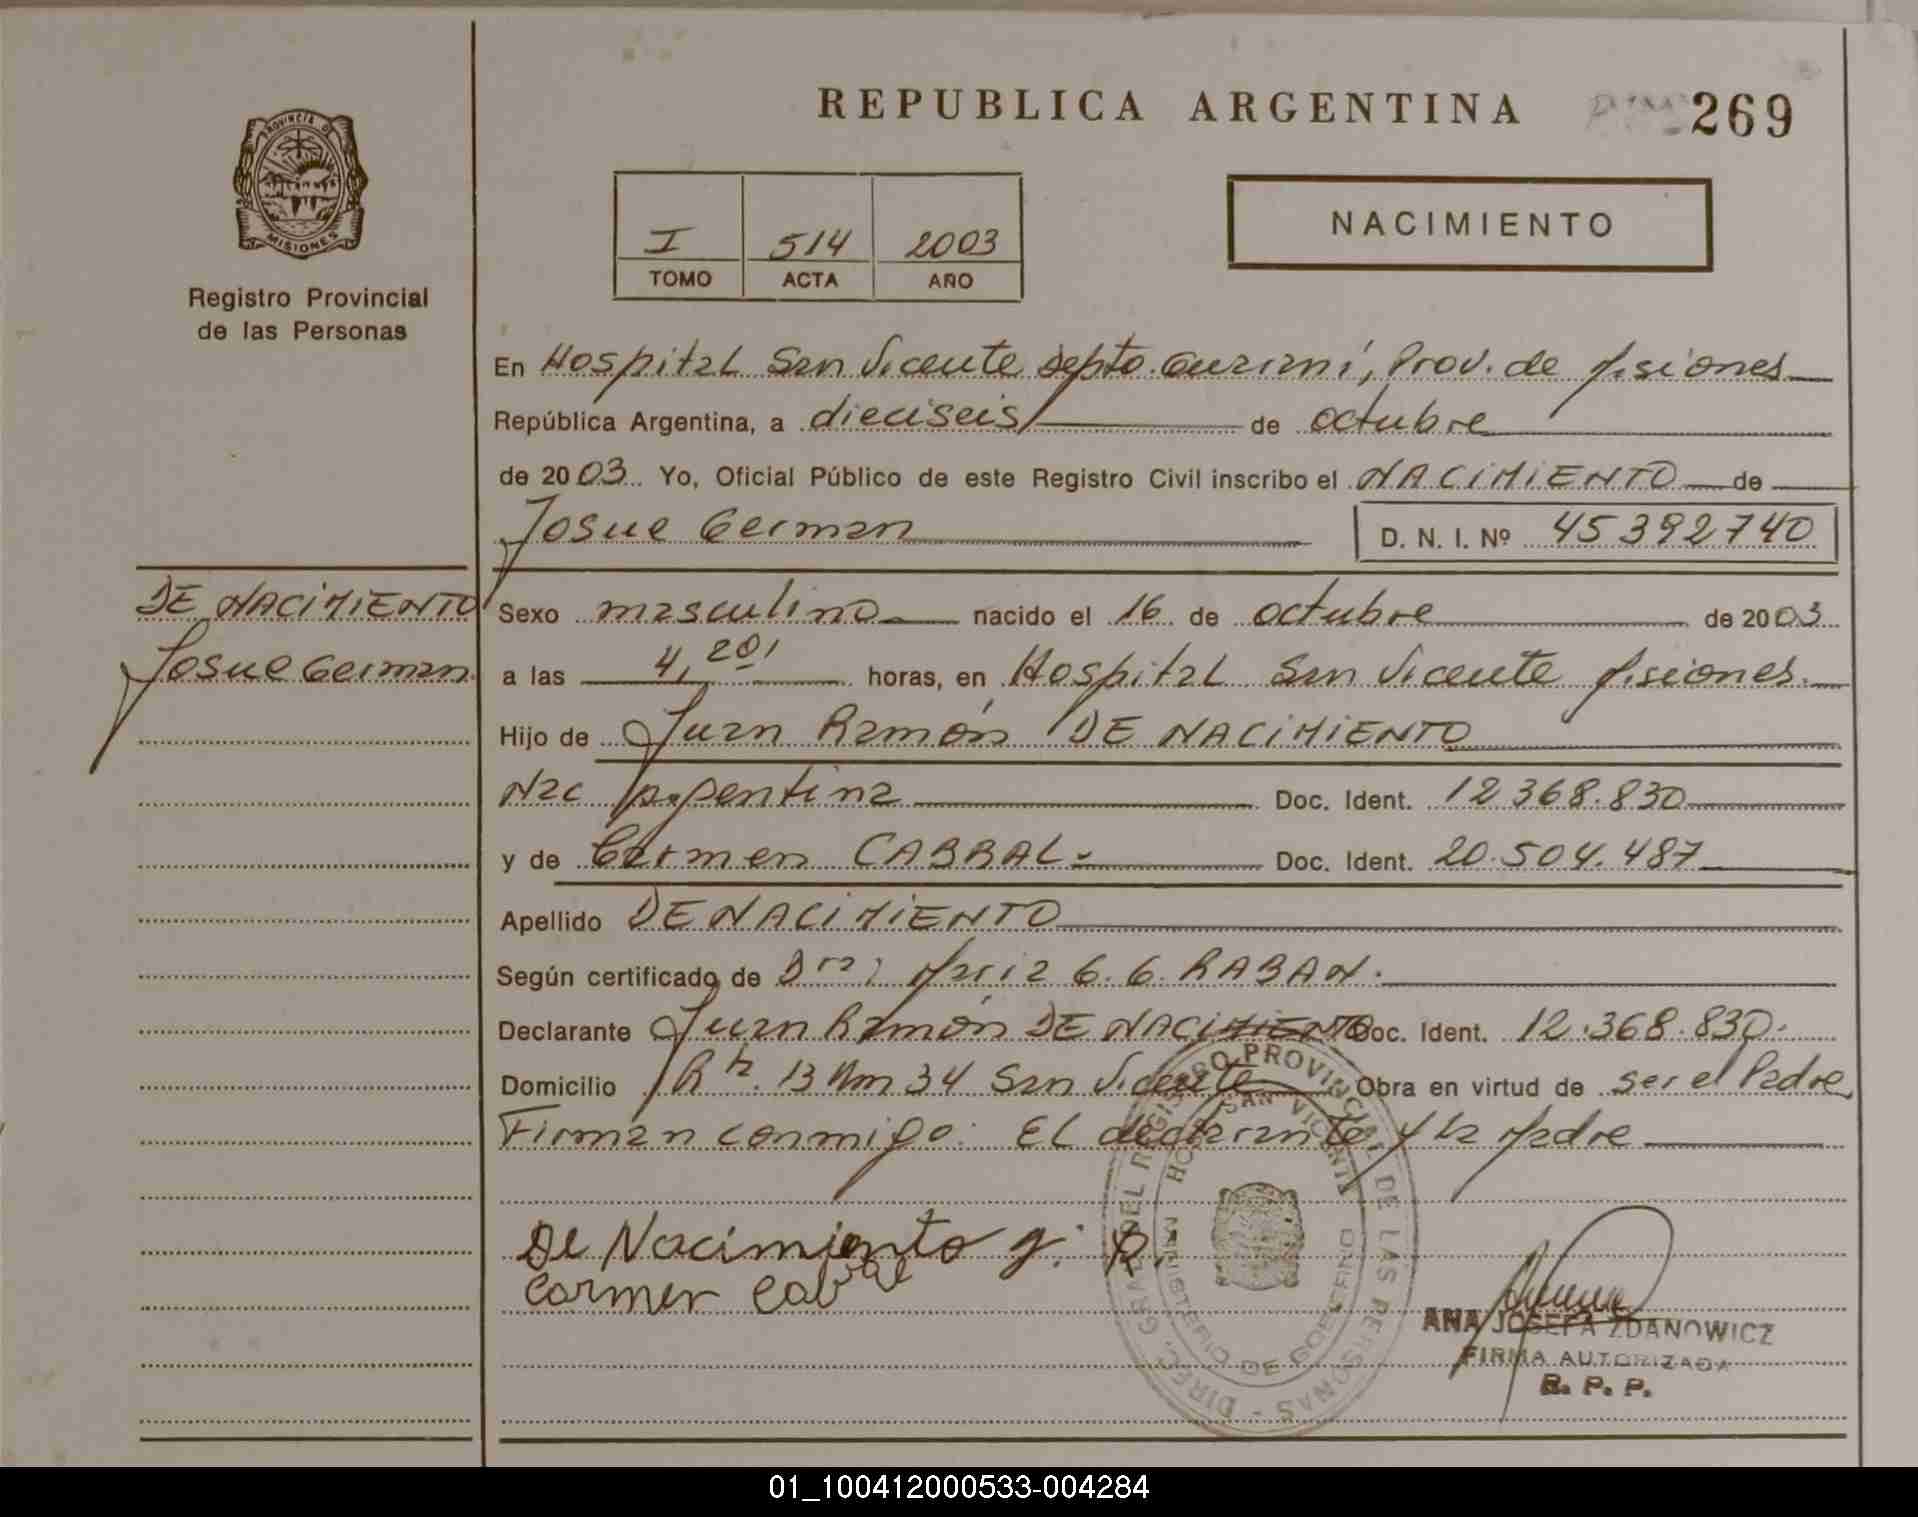 REPUBLICA ARGENTINA
269
PROVINCIA DE
MISIONES
Registro Provincial
de las Personas
I 514 2003
TOMO ACTA AÑO
NACIMIENTO
En Hospital San Vicente Depto. Guaraní, Prov. de Misiones
República Argentina, a dieciseis de octubre
de 2003. Yo, Oficial Público de este Registro Civil inscribo el NACIMIENTO de
Josue German D. N. I. Nº 45392740
DE NACIMIENTO
Josue German
Sexo masculino nacido el 16 de octubre de 2003
a las 4,20' horas, en Hospital San Vicente Misiones.
Hijo de Juan Ramón DE NACIMIENTO
Nac Argentina Doc. Ident. 12.368.830
y de Carmen CABRAL- Doc. Ident. 20.504.487
Apellido DE NACIMIENTO
Según certificado de Dra; Maria G. G. RABAN.
Declarante Juan Ramón DE NACIMIENTO Doc. Ident. 12.368.830.
Domicilio Rta. 13 Km 34 San Vicente Obra en virtud de ser el Padre
Firman conmigo: El declarante y la Madre
De Nacimiento J. R.
Carmen Cabral
DIREC. GRAL. DEL REGISTRO PROVINCIAL DE LAS PERSONAS -
HOSP. SAN VICENTE
MINISTERIO DE GOBIERNO
ANA JOSEFA ZDANOWICZ
FIRMA AUTORIZADA
R. P. P.
01_100412000533-004284